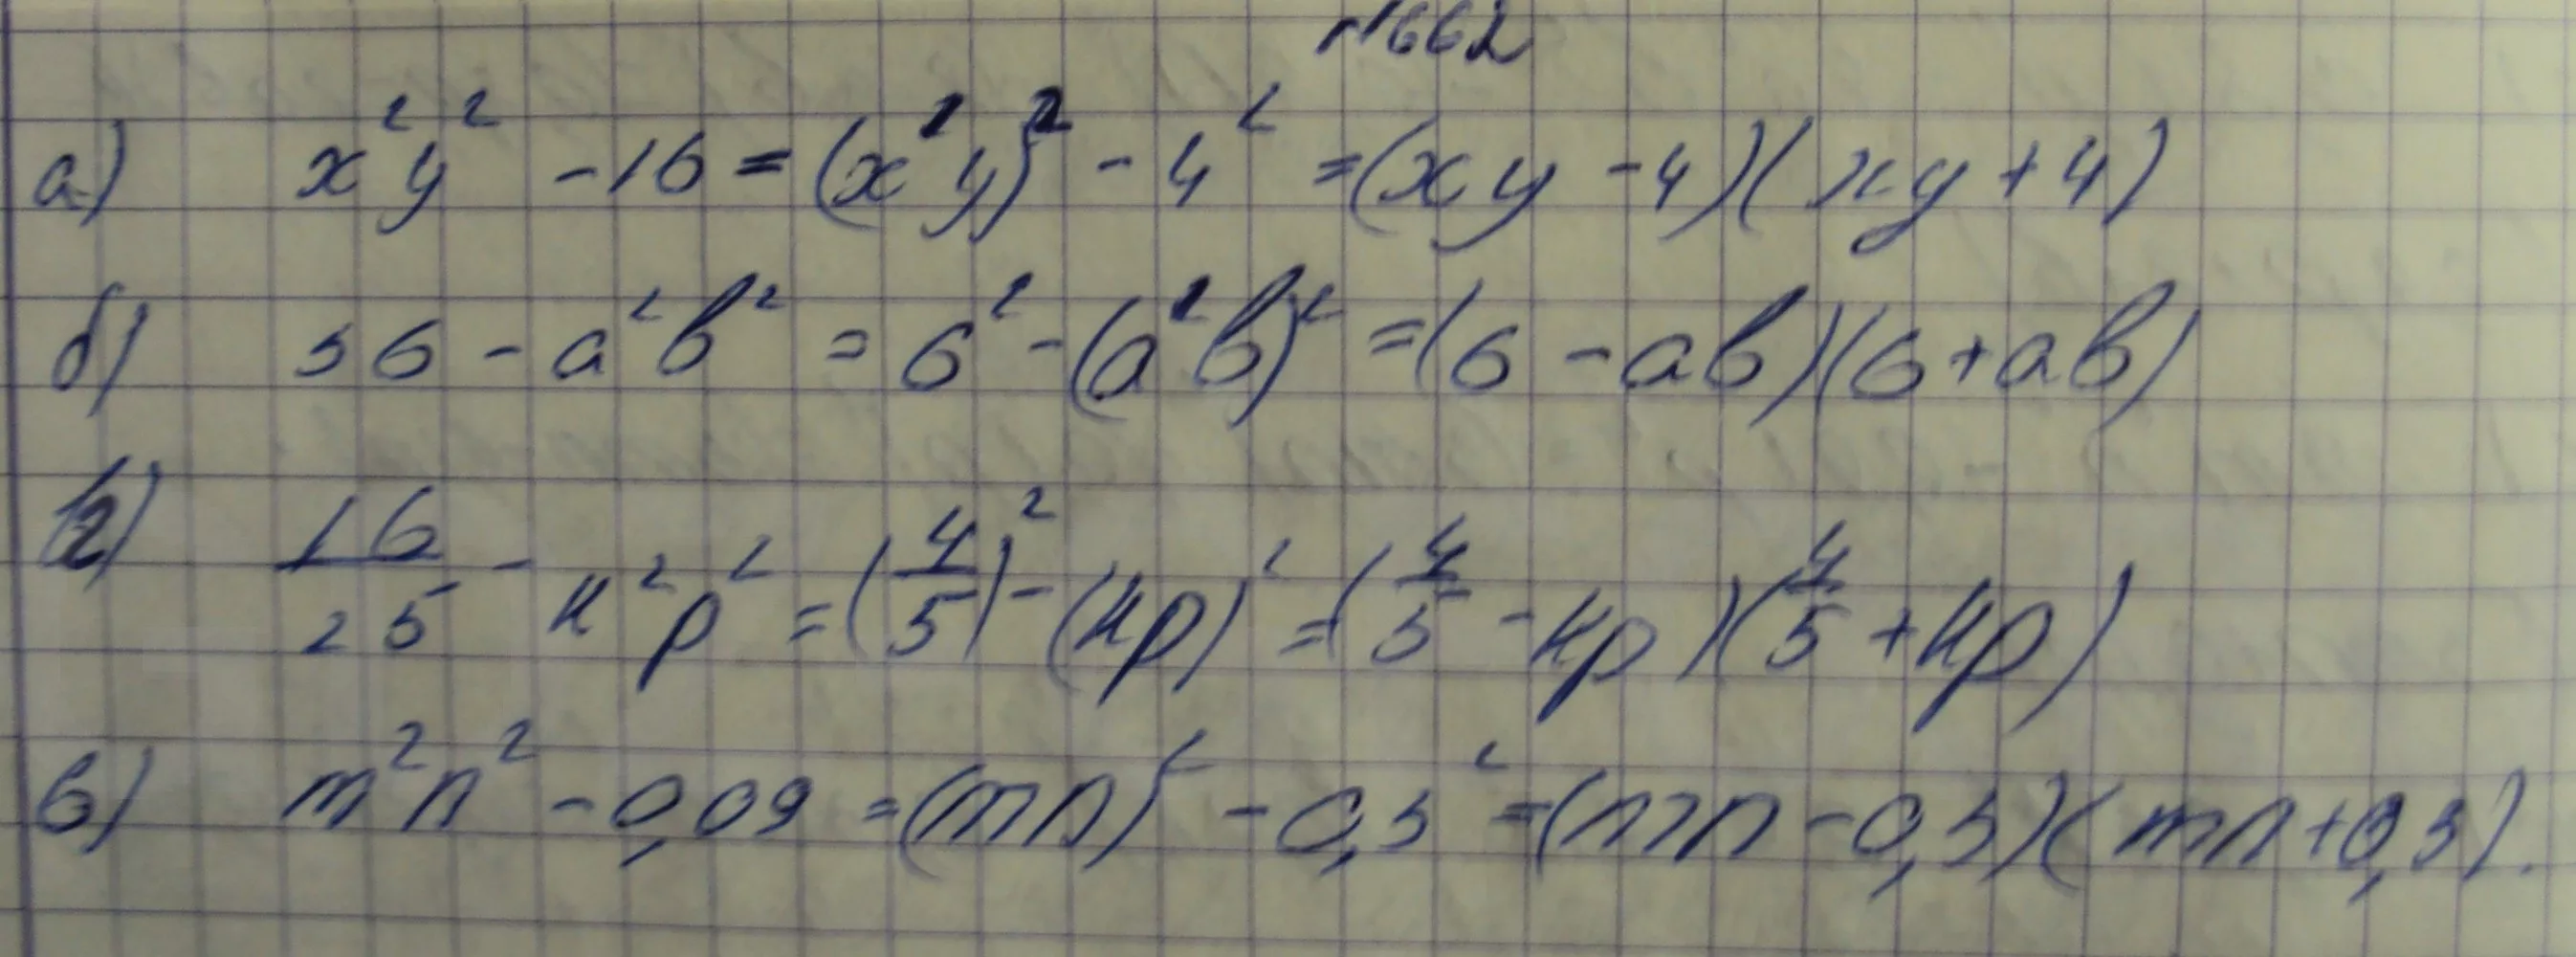 №662
а) x²y² - 16 = (x²y)² - 4² = (xy - 4)(xy + 4)
б) 36 - a²b² = 6² - (a²b)² = (6 - ab)(6 + ab)
г) 16/25 - k²p² = (4/5)² - (kp)² = (4/5 - kp)(4/5 + kp)
в) m²n² - 0,09 = (mn)² - 0,3² = (mn - 0,3)(mn + 0,3).